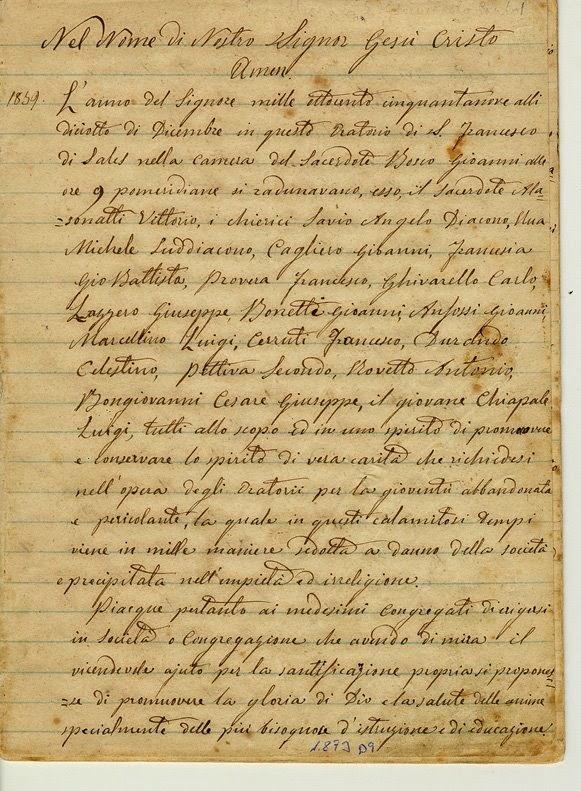 Nel Nome di Nostro Signor Gesù Cristo
Amen.
1859. L'anno del Signore mille ottocento cinquantanove alli
diciotto di Dicembre in questo Oratorio di S. Francesco
di Sales nella camera del Sacerdote Bosco Gioanni alle
ore 9 pomeridiane si radunavano, esso, il Sacerdote Ala-
=sonatti Vittorio, i chierici Savio Angelo Diacono, Rua
Michele Suddiacono, Cagliero Gioanni, Francesia
Gio Battista, Provera Francesco, Ghivarello Carlo,
Lazzero Giuseppe, Bonetti Gioanni, Anfossi Gioanni,
Marcellino Luigi, Cerruti Francesco, Durando
Celestino, Pettiva Secondo, Rovetto Antonio,
Bongiovanni Cesare Giuseppe, il giovane Chiapale
Luigi, tutti allo scopo ed in uno spirito di promuovere
e conservare lo spirito di vera carità che richiedesi
nell'opera degli Oratorii per la gioventù abbandonata
e pericolante, la quale in questi calamitosi tempi
viene in mille maniere sedotta a danno della società
e precipitata nell'empietà ed irreligione.
Piacque pertanto ai medesimi Congregati di erigersi
in società o Congregazione che avendo di mira il
vicendevole ajuto per la santificazione propria si propones=
=se di promuovere la gloria di Dio e la salute delle anime
specialmente delle più bisognose d'istruzione e di educazione